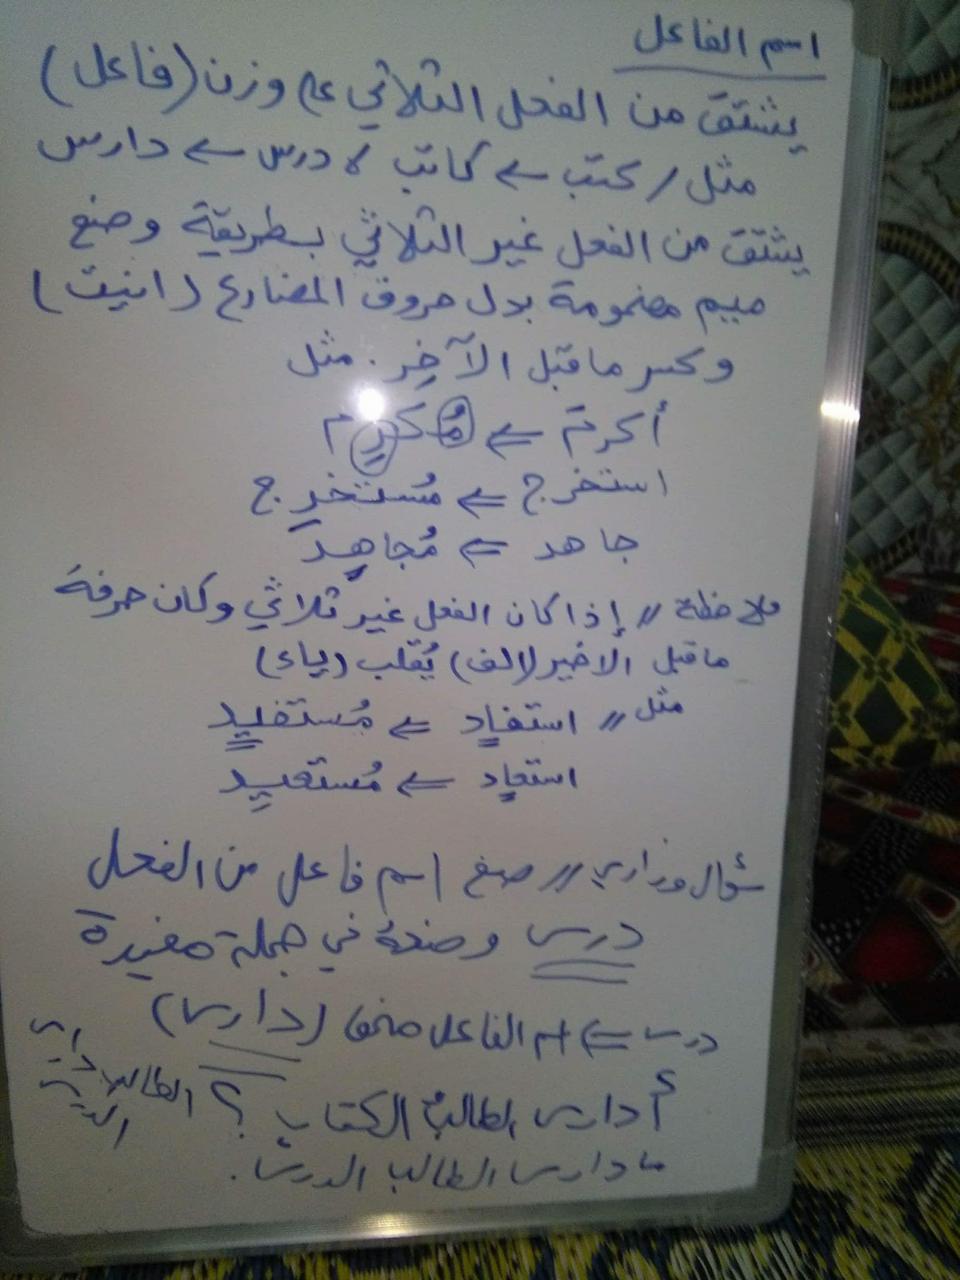 اسم الفاعل
يشتق من الفعل الثلاثي على وزن (فاعل)
مثل / كتب ← كاتب ، درس ← دارس
يشتق من الفعل غير الثلاثي بطريقة وضع
ميم مضمومة بدل حروف المضارع (انيت)
وكسر ما قبل الآخِر . مثل
أكرمَ ⇐ مُكرِم
استخرج ⇐ مُستخرِج
جاهد ⇐ مُجاهِد
ملاحظة // إذا كان الفعل غير ثلاثي وكان حرفهُ
ما قبل الاخير (الف) يُقلب (ياء)
مثل // استفاد ⇐ مُستفيد
استعاد ⇐ مُستعيد
سؤال وزاري // صغ اسم فاعل من الفعل
درس وضعهُ في جملة مفيدة
درس ⇐ اسم الفاعل منها (دارس)
أدارس الطالبُ الكتاب ؟
الطالب دارس
الدرس
ما دارس الطالب الدرس .